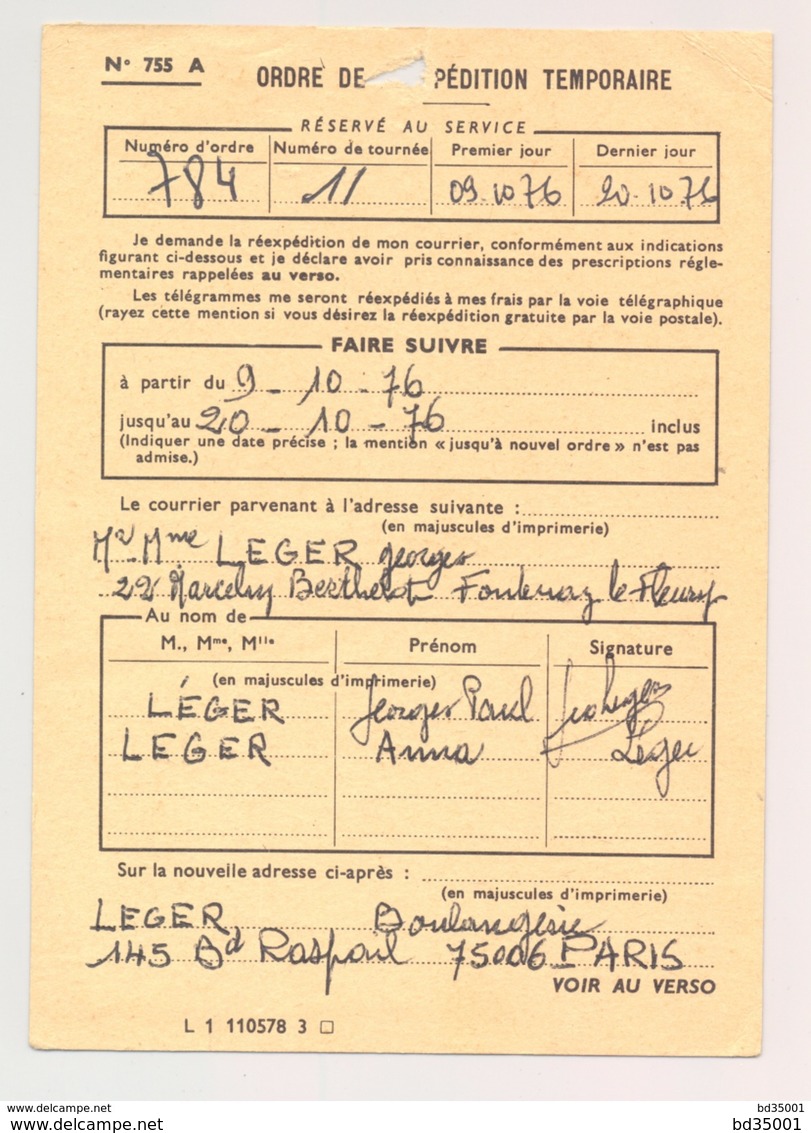 N° 755 A
ORDRE DE PÉDITION TEMPORAIRE
RÉSERVÉ AU SERVICE
Numéro d'ordre Numéro de tournée Premier jour Dernier jour
784 11 09.10 76 20.10 76
Je demande la réexpédition de mon courrier, conformément aux indications
figurant ci-dessous et je déclare avoir pris connaissance des prescriptions régle-
mentaires rappelées au verso.
Les télégrammes me seront réexpédiés à mes frais par la voie télégraphique
(rayez cette mention si vous désirez la réexpédition gratuite par la voie postale).
FAIRE SUIVRE
à partir du 9 - 10 - 76
jusqu'au 20 - 10 - 76 inclus
(Indiquer une date précise ; la mention « jusqu'à nouvel ordre » n'est pas
admise.)
Le courrier parvenant à l'adresse suivante :
(en majuscules d'imprimerie)
Mr Mme LEGER georges
22 Marcelin Berthelot Fontenay le Fleury
Au nom de
M., Mme, Mlle Prénom Signature
(en majuscules d'imprimerie)
LÉGER Georges Paul
LEGER Anna Léger
Sur la nouvelle adresse ci-après :
(en majuscules d'imprimerie)
LEGER Boulangerie
145 Bd Raspail 75006 PARIS
VOIR AU VERSO
L 1 110578 3
www.delcampe.net bd35001
www.delcampe.net bd35001